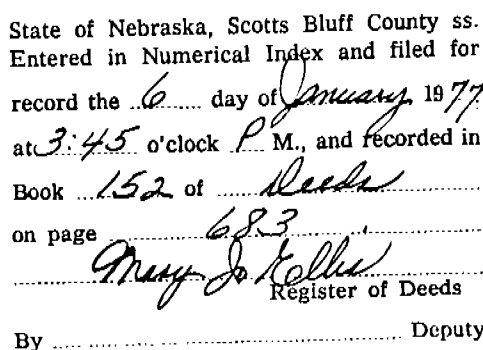 State of Nebraska, Scotts Bluff County ss.
Entered in Numerical Index and filed for
record the 6 day of January 1977
at 3:45 o'clock P M., and recorded in
Book 152 of Deeds
on page 683
Mary Jo Ellis
Register of Deeds
By ........................ Deputy